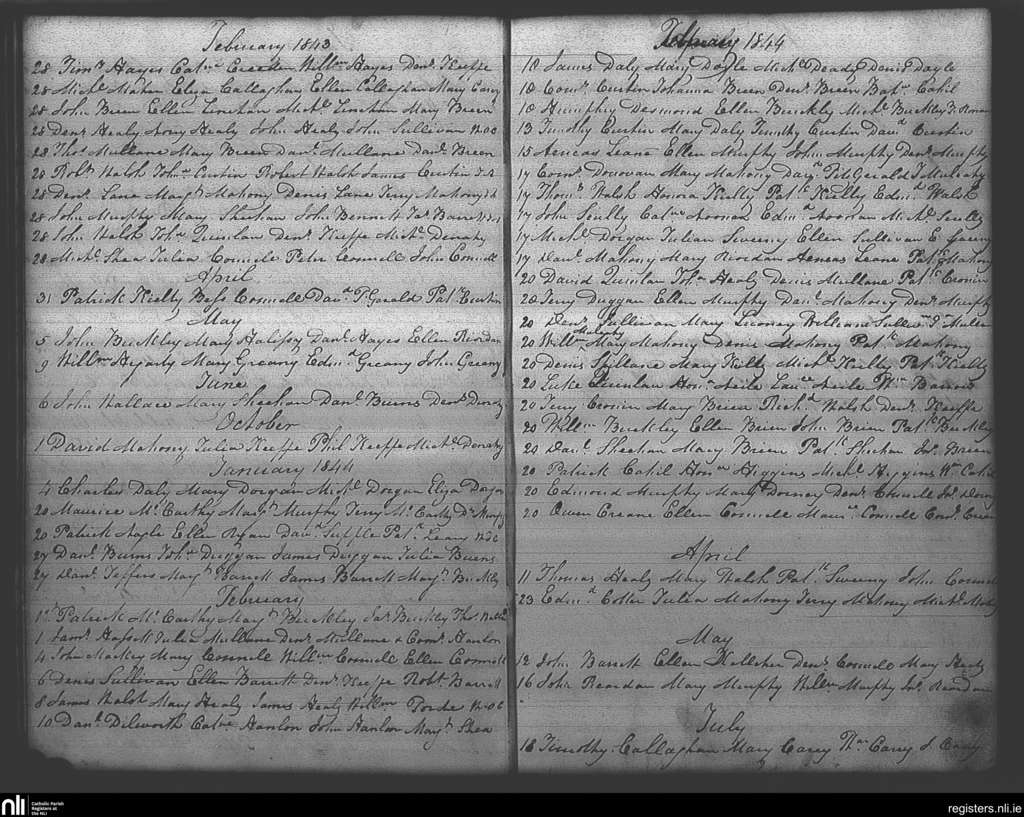 February 1843
28 Timy Hayes Cathe Creedon Willm Hayes Denis Keeffe
28 Michl Mahen Eliza Callaghan Ellen Callaghan Mary Carey
28 John Breen Ellen Linehan Michl Linehan Mary Breen
28 Denis Healy Healy John Healy John Sullivan
28 Thos Mullane Mary Breen Danl Mullane Danl Breen
28 Robt Walsh Curtin Robert Walsh James Curtin
28 Denis Lane Margt Mahony Denis Lane Jerry Mahony
28 John Murphy Mary Sheehan John Bennett Jas Barrett
28 John Walsh Quinlan Denis Keeffe Michl Denahy
28 Michl Shea Julia Connell Peter Connell John Connell
April
31 Patrick Kielly Bess Connell David FGerald Patk Curtin
May
5 John Buckley Mary Halissy Danl Hayes Ellen Riordan
9 Willm Hegarty Mary Greany Edmd Greany John Greany
June
6 John Wallace Mary Sheehan Danl Burns Denis Denahy
October
1 David Mahony Julia Keeffe Phil Keeffe Michl Denahy
January 1844
4 Charles Daly Mary Dorgan Michl Dorgan Eliza Dorgan
20 Maurice Mc Carthy Margt Murphy Jerry Mc Carthy
20 Patrick Nagle Ellen Ryan Patk Leary
27 Danl Burns Duggan James Duggan Julia Burns
27 Danl Jeffers Margt Barrett James Barrett Margt Buckley
February
1st Patrick Mc Carthy Margt Buckley Jas Buckley Thos
1 Julia Mullane Denis Mullane & Corns Hanlon
4 John Mackey Mary Connell Willm Connell Ellen Connell
6 Denis Sullivan Ellen Barrett Denis Keeffe Robt Barrett
8 James Walsh Mary Healy James Healy Willm
10 Danl Dilworth Cathe Hanlon John Hanlon Margt Shea
February 1844
18 James Daly Mary Doyle Michl Deady Denis Doyle
18 Corns Curtin Johanna Breen Denis Breen Cahil
18 Humphry Desmond Ellen Buckly Michl Buckley
13 Timothy Curtin Mary Daly Timothy Curtin David Curtin
15 Aeneas Leane Ellen Murphy John Murphy Denis Murphy
17 Corns Donovan Mary Mahony David FitzGerald J Mulcahy
17 Thoms Walsh Honora Kielly Patk Kielly Edmd Walsh
17 John Scully Cathe Noonan Edmd Noonan Michl Scully
17 Michl Dorgan Julian Sweeny Ellen Sullivan E.
17 Danl Mahony Mary Riordan Aeneas Leane Patk Mahony
20 David Quinlan Healy Denis Mullane Patk Cronin
20 Jerry Duggan Ellen Murphy Danl Mahony Denis Murphy
20 Denis Sullivan Mary Looney William Sullivan
20 Willm Mulcahy Mary Mahony Denis Mahony Patk Mahony
20 Denis Mary Kielly Michl Kielly Patk Kielly
20 Luke Quinlan Neile Neile Wm Barrett
20 Jerry Cronin Mary Brien Richd Walsh Denis Keeffe
20 Willm Buckley Ellen Brien John Brien Patk Buckley
20 Danl Sheehan Mary Brien Patk Sheehan Jas Brien
20 Patrick Cahil Higgins Michl Higgins Wm Cahil
20 Edmond Murphy Mary Dorney Denis Connell
20 Owen Creane Ellen Connell Maurce Connell Creane
April
11 Thomas Healy Mary Walsh Patk Sweeny John Connell
23 Edmd Julia Mahony Jerry Mahony Michl
May
12 John Barrett Ellen Kelleher Denis Connell Mary Healy
16 John Reardan Mary Murphy Willm Murphy Reardan
July
16 Timothy Callaghan Mary Carey Carey J Carey
nli
Catholic Parish
Registers at
the NLI
registers.nli.ie